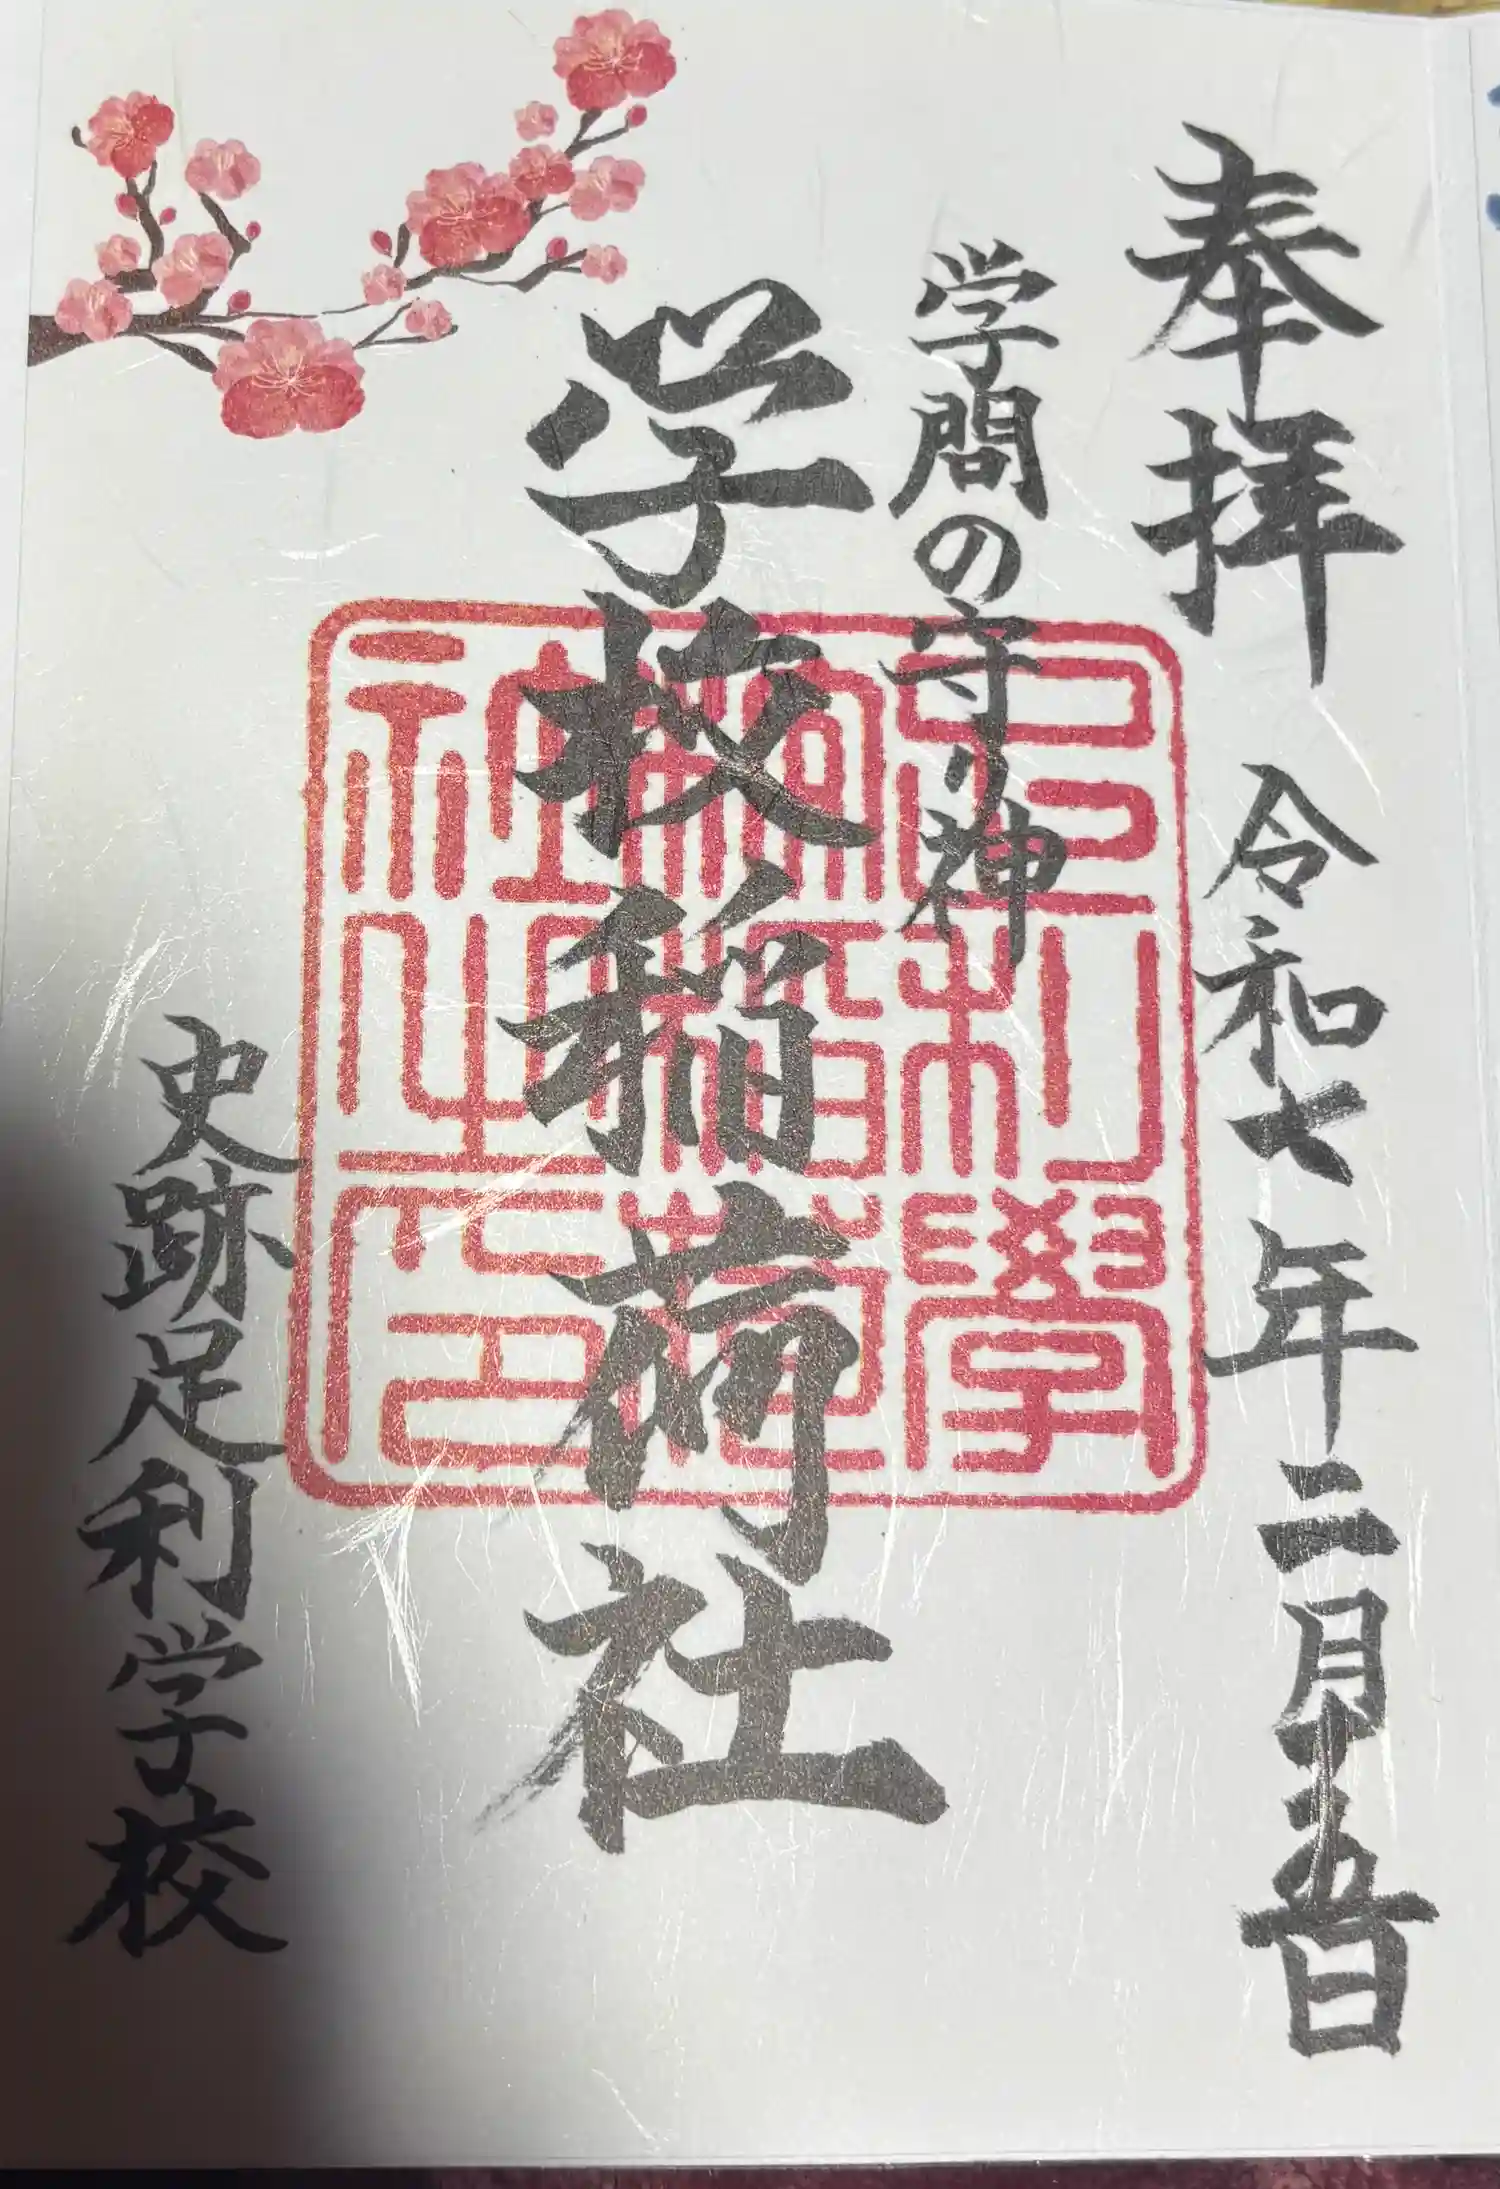 奉拝
令和七年二月十五日
学問の守り神
学校稲荷社
足利學
校稲荷
社之印
史跡足利学校